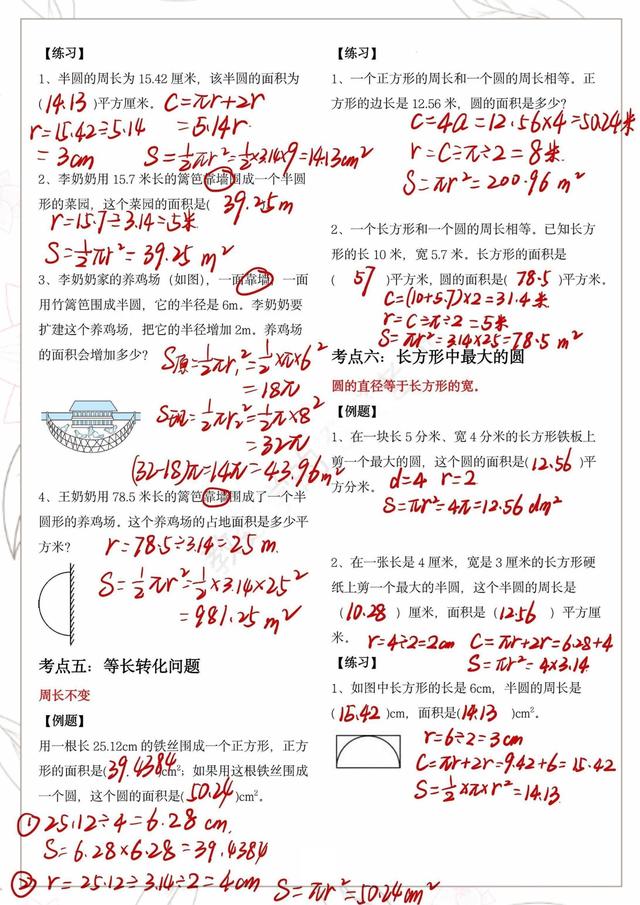 【练习】
1、半圆的周长为 15.42 厘米，该半圆的面积为
( 14.13 )平方厘米． C=πr+2r
r=15.42÷5.14 =5.14r
=3cm S=½πr²=½×3.14×9=14.13cm²
2、李奶奶用 15.7 米长的篱笆靠墙围成一个半圆
形的菜园，这个菜园的面积是( 39.25m
r=15.7÷3.14=5米
S=½πr²=39.25 m²
3、李奶奶家的养鸡场（如图），一面靠墙，一面
用竹篱笆围成半圆，它的半径是 6m．李奶奶要
扩建这个养鸡场，把它的半径增加 2m．养鸡场
的面积会增加多少？ S原=½πr₁²=½×π×6²
=18π
S现=½πr₂²=½π×8²
=32π
(32-18)π=14π=43.96m²
4、王奶奶用 78.5 米长的篱笆靠墙围成了一个半
圆形的养鸡场．这个养鸡场的占地面积是多少平
方米？ r=78.5÷3.14=25 m.
S=½πr²=½×3.14×25²
=981.25m²
考点五：等长转化问题
周长不变
【例题】
用一根长 25.12cm 的铁丝围成一个正方形，正方
形的面积是(39.4384)cm²；如果用这根铁丝围成
一个圆，这个圆的面积是(50.24)cm²．
① 25.12÷4=6.28 cm.
S=6.28×6.28=39.4384
② r=25.12÷3.14÷2=4cm S=πr²=50.24cm²
【练习】
1、一个正方形的周长和一个圆的周长相等．正
方形的边长是 12.56 米，圆的面积是多少？
C=4a=12.56×4=50.24米
r=C÷π÷2=8米
S=πr²=200.96 m²
2、一个长方形和一个圆的周长相等．已知长方
形的长 10 米，宽 5.7 米．长方形的面积是
( 57 )平方米，圆的面积是( 78.5 )平方米．
C=(10+5.7)×2=31.4米
r=C÷π÷2=5米
S=πr²=3.14×25=78.5 m²
考点六：长方形中最大的圆
圆的直径等于长方形的宽。
【例题】
1、在一块长 5 分米、宽 4 分米的长方形铁板上
剪一个最大的圆，这个圆的面积是(12.56 )平
方分米． d=4 r=2
S=πr²=4π=12.56 dm²
2、在一张长是 4 厘米，宽是 3 厘米的长方形硬
纸上剪一个最大的半圆，这个半圆的周长是
（10.28）厘米，面积是（12.56 ）平方厘
米． r=4÷2=2cm C=πr+2r=6.28+4
S=4×3.14
【练习】
1、如图中长方形的长是 6cm，半圆的周长是
(15.42 )cm，面积是(14.13 )cm²．
r=6÷2=3cm
C=πr+2r=9.42+6=15.42
S=½×π×r²=14.13